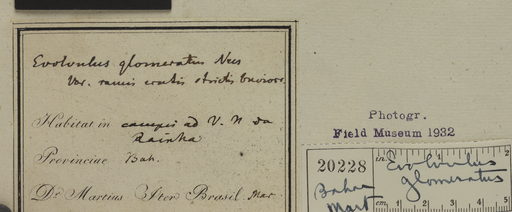 Evolvulus glomeratus Nees
Var. ramis erectis strictis
Habitat in campis ad V. N. da
Rainha
Provinciae Bah.
Dr. Martius Iter Brasil. Mart.
Photogr.
Field Museum 1932
20228
in. 1 2
Evolvulus
glomeratus
Bahia
Mart
cm 1 2 3 4 5